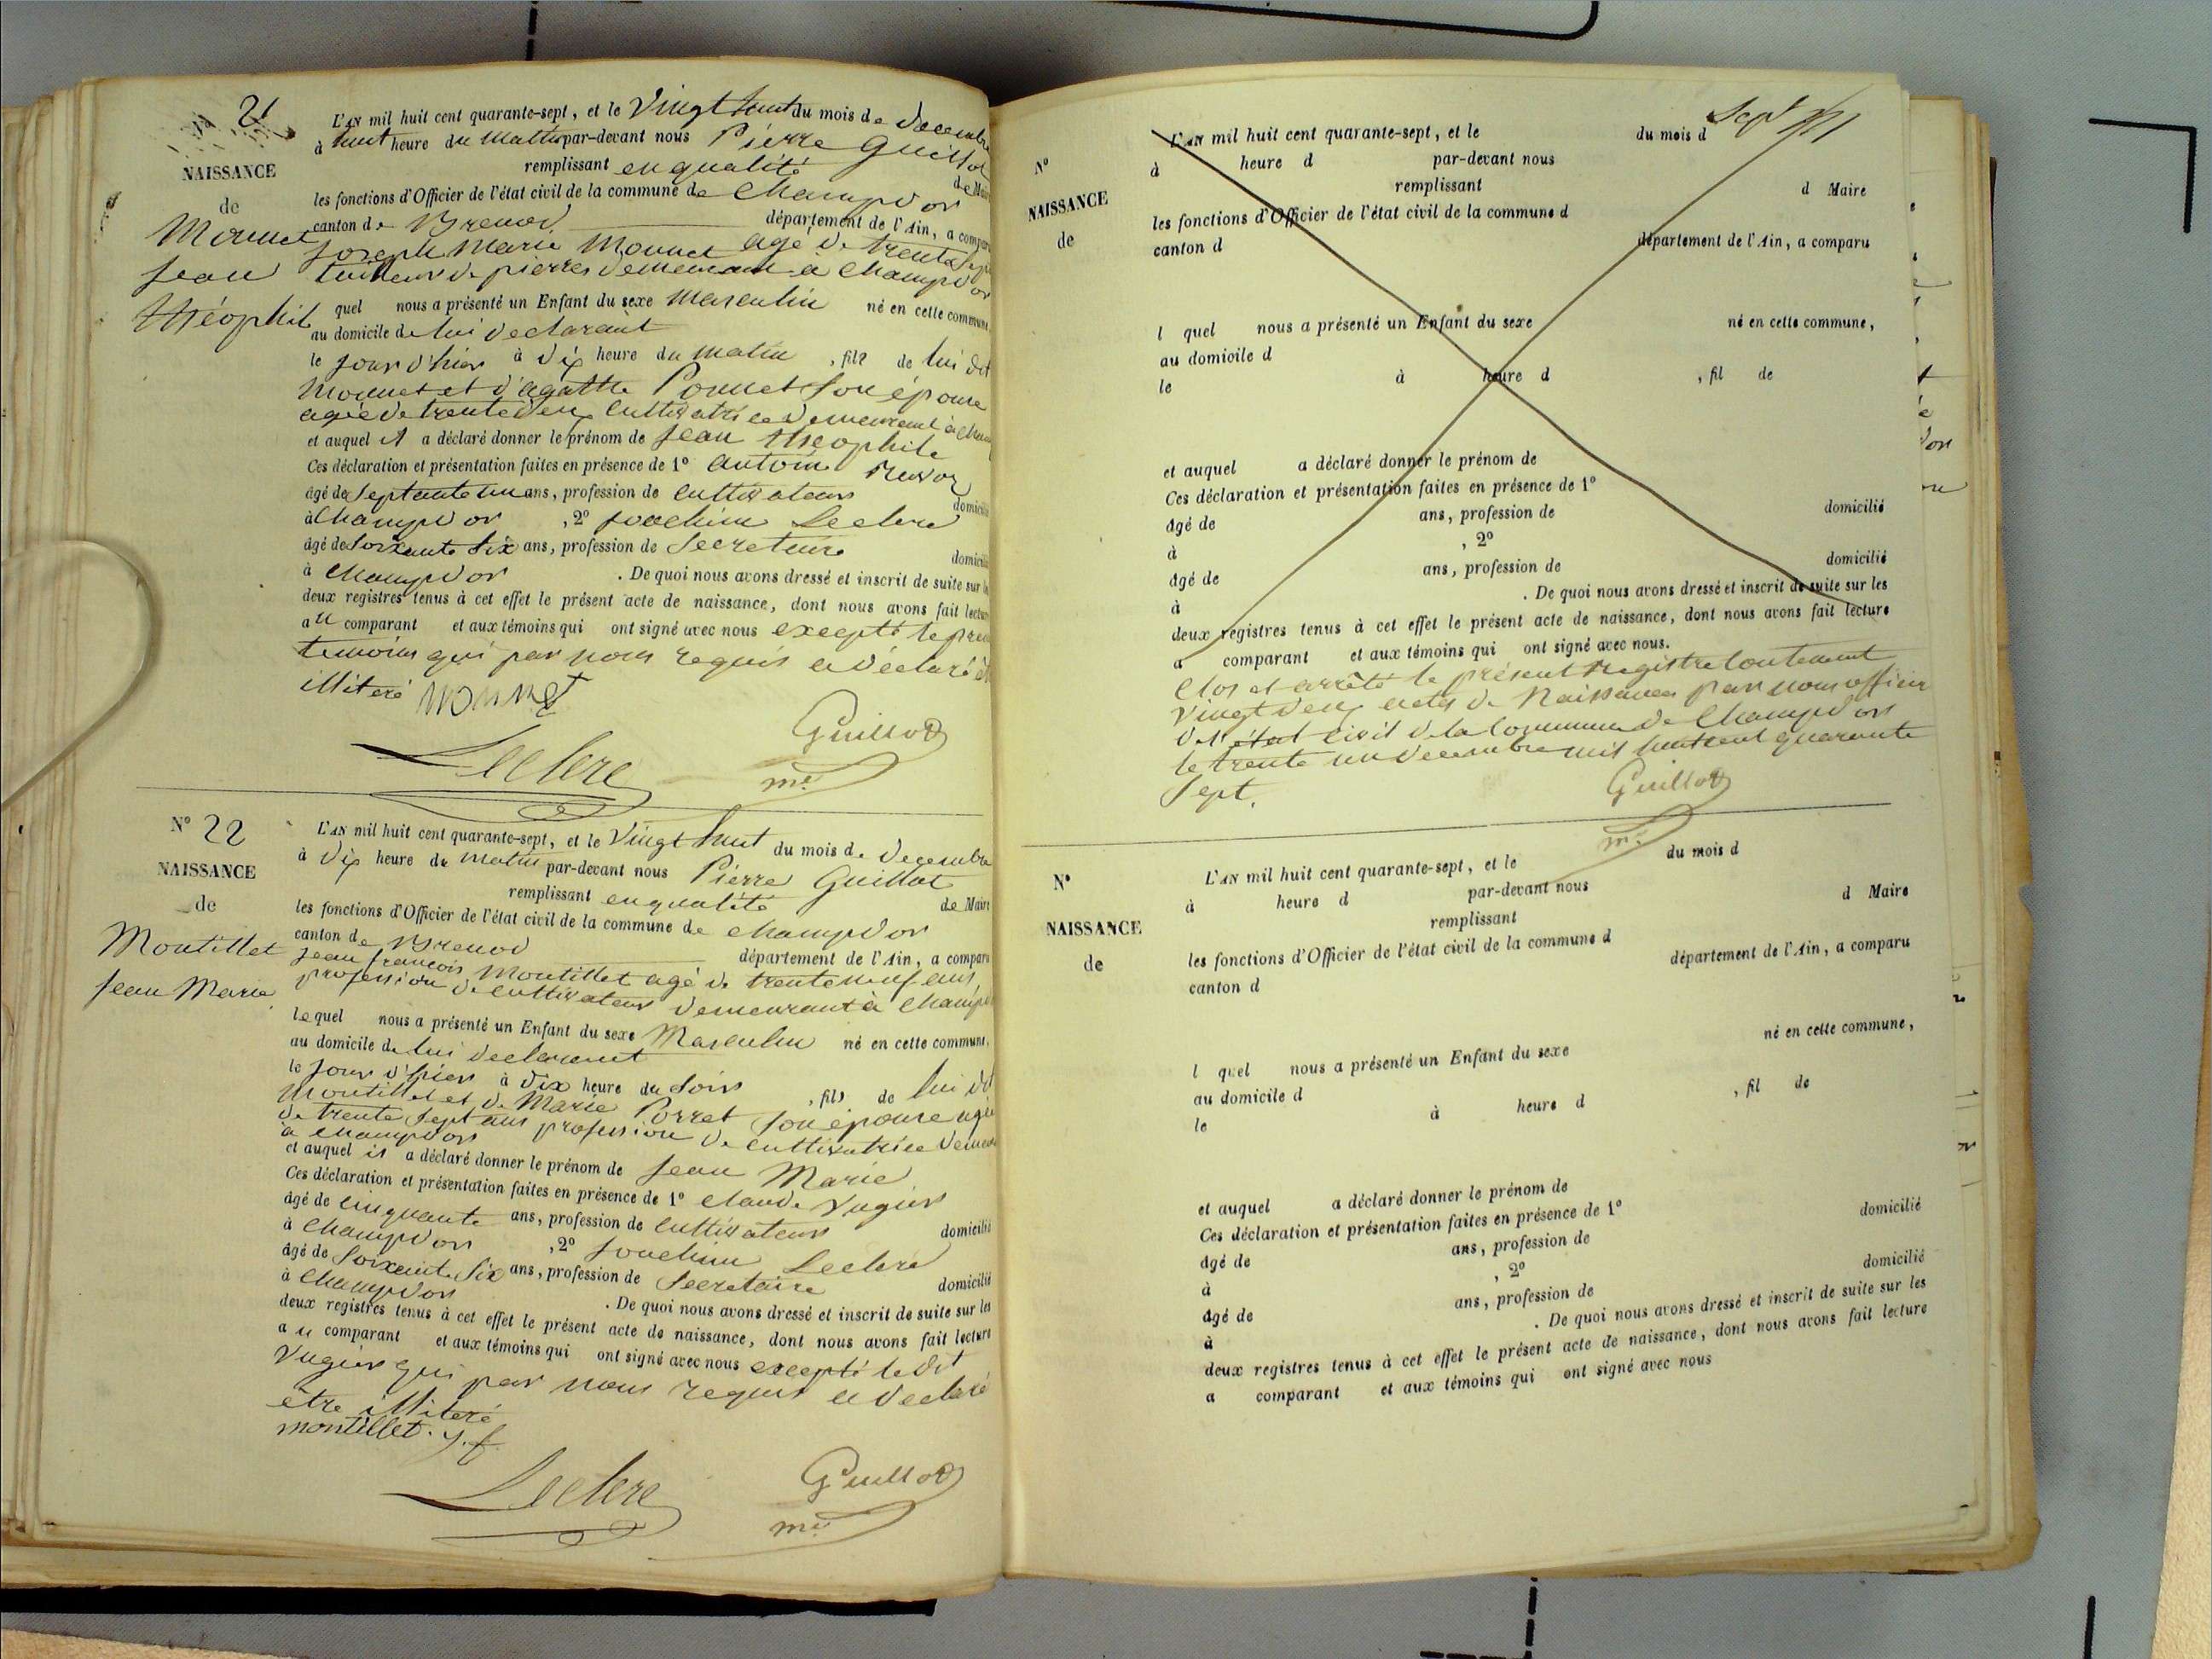 Nº 21
NAISSANCE
de
Monnet
Jean
théophile
L'AN mil huit cent quarante-sept, et le Vingt huit du mois de decembre
à huit heure du Matin par-devant nous Pierre Guillot
remplissant en qualité de Maire
les fonctions d'Officier de l'état civil de la commune de Champdor
canton de Brenod département de l'Ain, a comparu
Joseph Marie Monnet agé de trente sept
tailleur de pierres demeurant à Champdor
quel nous a présenté un Enfant du sexe Masculin né en cette commune,
au domicile de lui declarant
le jour d'hier à dix heure du matin, fils de lui dit
Monnet et d'agathe Ponnet son épouse
agée de trente deux cultivatrice demeurant à Cham
et auquel il a déclaré donner le prénom de Jean théophile
Ces déclaration et présentation faites en présence de 1º antoine
âgé de septante un ans, profession de cultivateur domicilié
à Champdor, 2º Joachim Leclere
âgé de soixante six ans, profession de Secretaire domicilié
à Champdor. De quoi nous avons dressé et inscrit de suite sur les
deux registres tenus à cet effet le présent acte de naissance, dont nous avons fait lecture
au comparant et aux témoins qui ont signé avec nous excepté le pre
temoins qui par nous requis a déclaré
illiteré Monnet
Guillot
Leclere me
Nº 22
NAISSANCE
de
Montillet
Jean Marie
L'AN mil huit cent quarante-sept, et le Vingt huit du mois de decembre
à dix heure du matin par-devant nous Pierre Guillot
remplissant en qualité de Maire
les fonctions d'Officier de l'état civil de la commune de Champdor
canton de Brenod département de l'Ain, a comparu
Jean françois Montillet agé de trente neuf ans
profession de cultivateur demeurant à Champd
lequel nous a présenté un Enfant du sexe Masculin né en cette commune,
au domicile de lui declarant
le jour d'hier à dix heure du soir, fils de lui dit
Montillet et de Marie Porret son épouse agée
de trente sept ans profession de cultivatrice demeu
à Champdor
et auquel il a déclaré donner le prénom de Jean Marie
Ces déclaration et présentation faites en présence de 1º Claude Vugier
âgé de cinquante ans, profession de cultivateur domicilié
à Champdor, 2º Joachim Leclere
âgé de soixante six ans, profession de Secretaire domicilié
à Champdor. De quoi nous avons dressé et inscrit de suite sur les
deux registres tenus à cet effet le présent acte de naissance, dont nous avons fait lecture
au comparant et aux témoins qui ont signé avec nous excepté le dit
Vugier qui par nous requis a declaré
être illiteré
montillet. J. f.
Guillot
Leclere me
Nº
NAISSANCE
de
L'AN mil huit cent quarante-sept, et le du mois d
à heure d par-devant nous
remplissant d Maire
les fonctions d'Officier de l'état civil de la commune d
canton d département de l'Ain, a comparu
l quel nous a présenté un Enfant du sexe né en cette commune,
au domicile d
le à heure d , fil de
et auquel a déclaré donner le prénom de
Ces déclaration et présentation faites en présence de 1º
âgé de ans, profession de domicilié
à , 2º
âgé de ans, profession de domicilié
à . De quoi nous avons dressé et inscrit de suite sur les
deux registres tenus à cet effet le présent acte de naissance, dont nous avons fait lecture
a comparant et aux témoins qui ont signé avec nous.
Clos et arrêté le présent Registre Contenant
Vingt deux actes de Naissances par nous officier
de l'état civil de la Commune de Champdor
le trente un decembre mil huit cent quarante
Sept.
Guillot
me
Nº
NAISSANCE
de
L'AN mil huit cent quarante-sept, et le du mois d
à heure d par-devant nous
remplissant d Maire
les fonctions d'Officier de l'état civil de la commune d
canton d département de l'Ain, a comparu
l quel nous a présenté un Enfant du sexe né en cette commune,
au domicile d
le à heure d , fil de
et auquel a déclaré donner le prénom de
Ces déclaration et présentation faites en présence de 1º
âgé de ans, profession de domicilié
à , 2º
âgé de ans, profession de domicilié
à . De quoi nous avons dressé et inscrit de suite sur les
deux registres tenus à cet effet le présent acte de naissance, dont nous avons fait lecture
a comparant et aux témoins qui ont signé avec nous